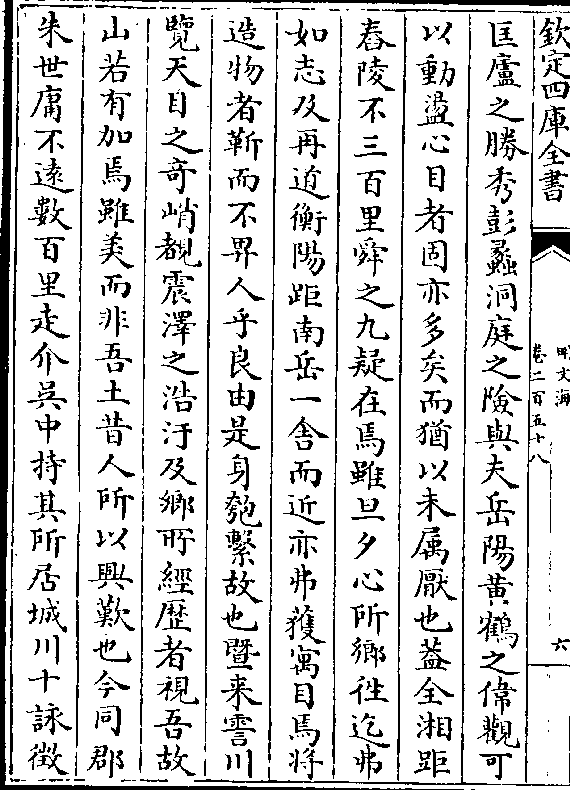 欽定四庫全書
明文海
卷二百五十八
六
匡廬之勝秀彭蠡洞庭之險與夫岳陽黄鶴之偉觀可
以動盪心目者固亦多矣而猶以未属厭也葢全湘距
舂陵不三百里舜之九疑在焉雖旦夕心所鄉徃迄弗
如志及再逰衡陽距南岳一舎而近亦弗獲寓目焉將
造物者靳而不畀人乎良由是身匏繫故也暨来霅川
覽天目之奇峭覩震澤之浩汗及鄉所經歴者視吾故
山若有加焉雖美而非吾土昔人所以興歎也今同郡
朱世庸不逺數百里走介呉中持其所居城川十詠徴